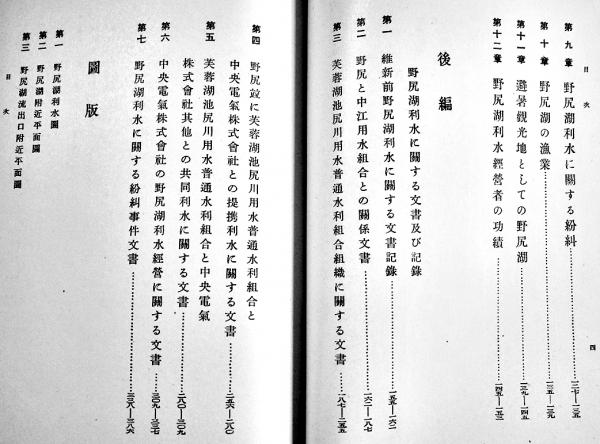 目次
四
第九章 野尻湖利水に關する紛糾
第十章 野尻湖の漁業
第十一章 避暑觀光地としての野尻湖
第十二章 野尻湖利水經營者の功績
後編
野尻湖利水に關する文書及び記錄
第一 維新前野尻湖利水に關する文書記錄
第二 野尻と中江用水組合との關係文書
第三 芙蓉湖池尻川用水普通水利組合組織に關する文書
第四 野尻竝に芙蓉湖池尻川用水普通水利組合と
中央電氣株式會社との提携利水に關する文書
第五 芙蓉湖池尻川用水普通水利組合と中央電氣
株式會社其他との共同利水に關する文書
第六 中央電氣株式會社の野尻湖利水經營に關する文書
第七 野尻湖利水に關する紛糾事件文書
圖版
第一 野尻湖利水圖
第二 野尻湖附近平面圖
第三 野尻湖流出口附近平面圖
目次